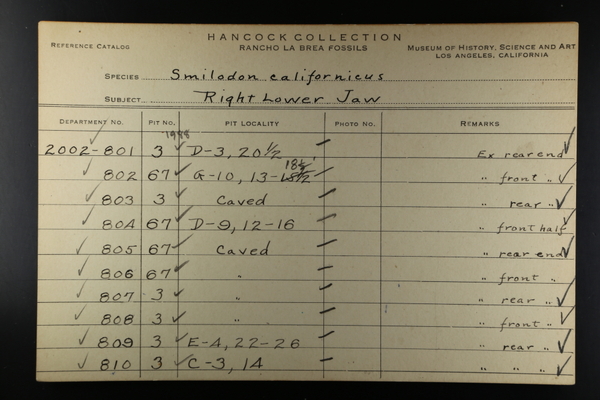 HANCOCK COLLECTION
REFERENCE CATALOG RANCHO LA BREA FOSSILS MUSEUM OF HISTORY, SCIENCE AND ART
LOS ANGELES, CALIFORNIA
SPECIES Smilodon californicus
SUBJECT Right Lower Jaw
DEPARTMENT NO. PIT NO. PIT LOCALITY PHOTO NO. REMARKS
1988
2002-801 3 ✓ D-3, 20 1/2 – Ex rear end ✓
✓ 802 67 ✓ G-10, 13- 18 1/2 – " front " ✓
✓ 803 3 ✓ Caved – " rear " ✓
✓ 804 67 ✓ D-9, 12-16 – " front half ✓
✓ 805 67 ✓ Caved – " rear end ✓
✓ 806 67 ✓ " – " front " ✓
✓ 807 3 ✓ " – " rear " ✓
✓ 808 3 ✓ " – " front " ✓
✓ 809 3 ✓ E-4, 22-26 – " rear " ✓
✓ 810 3 ✓ C-3, 14 – " " " ✓